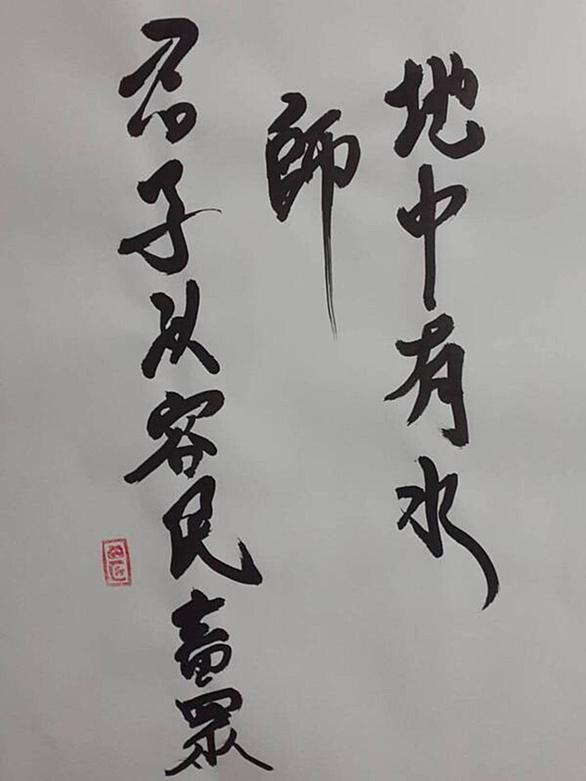 地中有水
師
君子以容民畜眾